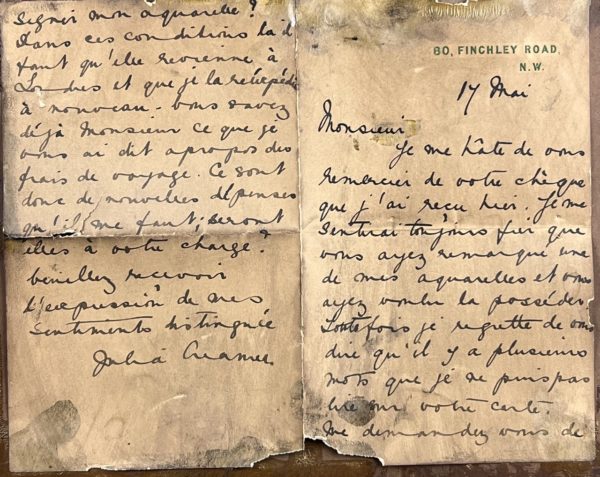 80, FINCHLEY ROAD,
N.W.
17 Mai
Monsieur
Je me hâte de vous
remercier de votre chèque
que j'ai recu hier. Je me
sentirai toujours fier que
vous ayez remarqué une
de mes aquarelles et vous
ayez voulu la posséder.
Toutefois je regrette de vous
dire qu'il y a plusieurs
mots que je ne puis pas
lire sur votre carte.
Me demandez vous de
signer mon aquarelle?
Dans ces conditions
faut qu'elle revienne à
Londres et que je la réexpédi
à nouveau. Vous savez
déjà Monsieur ce que je
vous ai dit apropos des
frais de voyage. Ce sont
donc de nouvelles dépenses
qu'il me faut; seront
elles à votre charge?
Veuillez recevoir
l'expression de mes
sentiments distingués
Julia Cramer